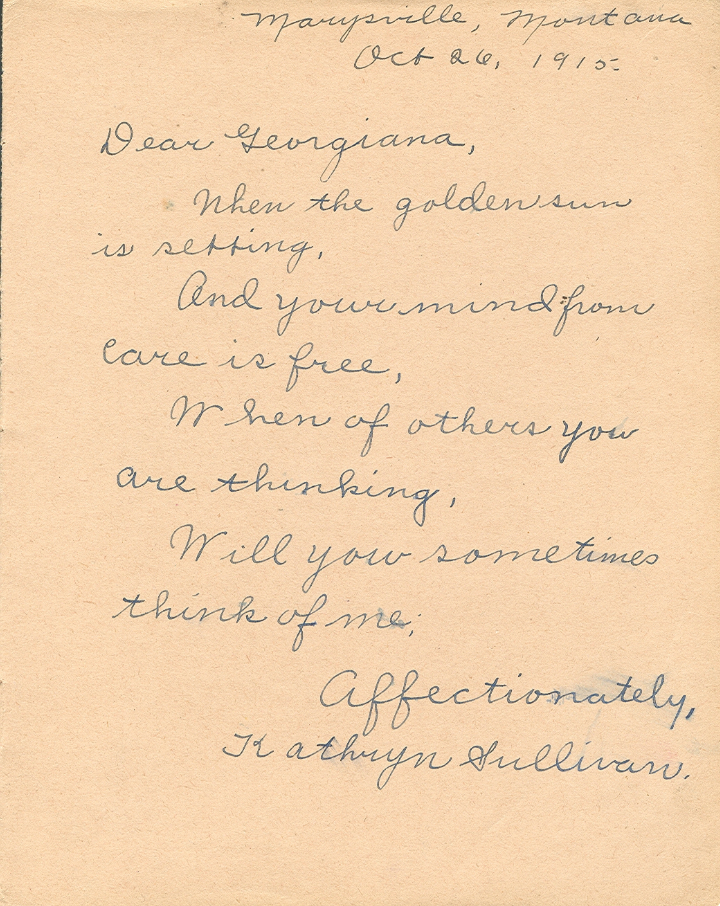 Marysville, Montana
Oct 26, 1915.
Dear Georgiana,
When the golden sun
is setting,
And your mind from
care is free,
When of others you
are thinking,
Will you sometimes
think of me;
Affectionately,
Kathryn Sullivan.